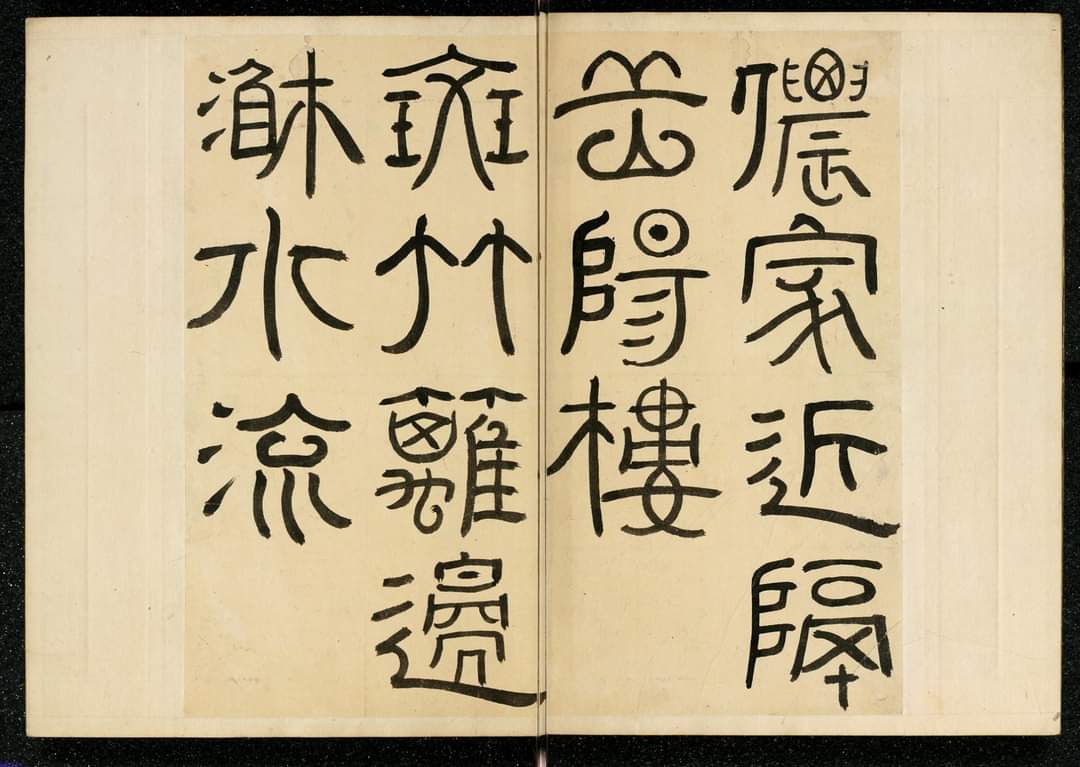 儂家近隔
岳陽樓
斑竹籬邊
湘水流